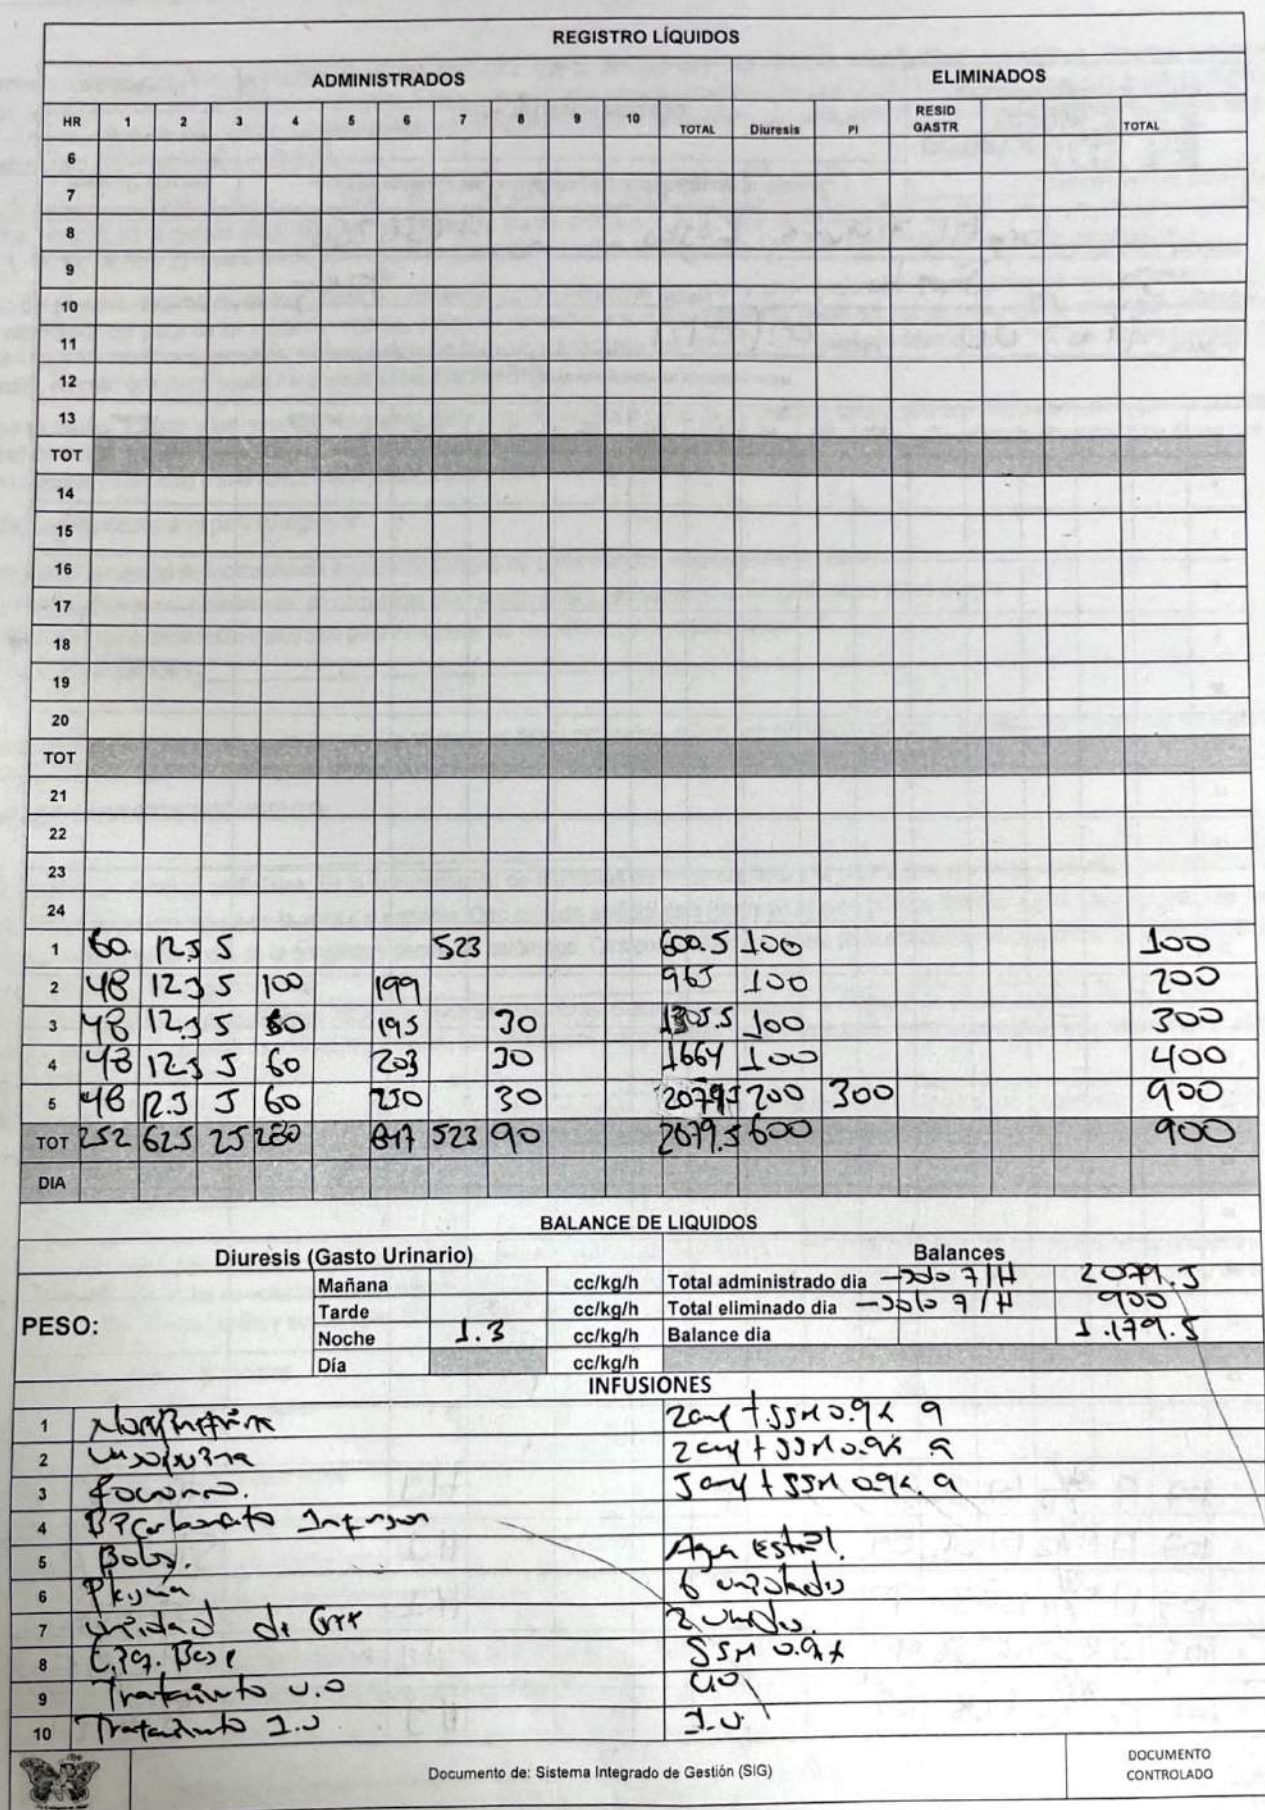 REGISTRO LÍQUIDOS
ADMINISTRADOS ELIMINADOS
HR 1 2 3 4 5 6 7 8 9 10 TOTAL Diuresis PI RESID GASTR TOTAL
6
7
8
9
10
11
12
13
TOT
14
15
16
17
18
19
20
TOT
21
22
23
24
1 60 12.5 5 523 600.5 100 100
2 48 12.5 5 100 199 965 100 200
3 48 12.5 5 60 195 30 1305.5 100 300
4 48 12.5 5 60 203 30 1664 100 400
5 48 12.5 5 60 250 30 2079.5 200 300 900
TOT 252 62.5 25 280 847 523 90 2079.5 600 900
DIA
BALANCE DE LIQUIDOS
Diuresis (Gasto Urinario) Balances
PESO:
Mañana cc/kg/h Total administrado dia 2079.5
Tarde cc/kg/h Total eliminado dia 900
Noche 1.3 cc/kg/h Balance dia 1.179.5
Día cc/kg/h
INFUSIONES
1 2 amp + SSN 0.9%
2 2 amp + SSN 0.9%
3 5 amp + SSN 0.9%
4 Bicarbonato Infusion
5 Bolos. Agua Esteril.
6 Plasma 6 unidades
7 unidad de 2 unides.
8 Base SSN 0.9%
9 Tratamiento v.o v.o
10 Tratamiento I.v I.v
Documento de: Sistema Integrado de Gestión (SIG)
DOCUMENTO CONTROLADO